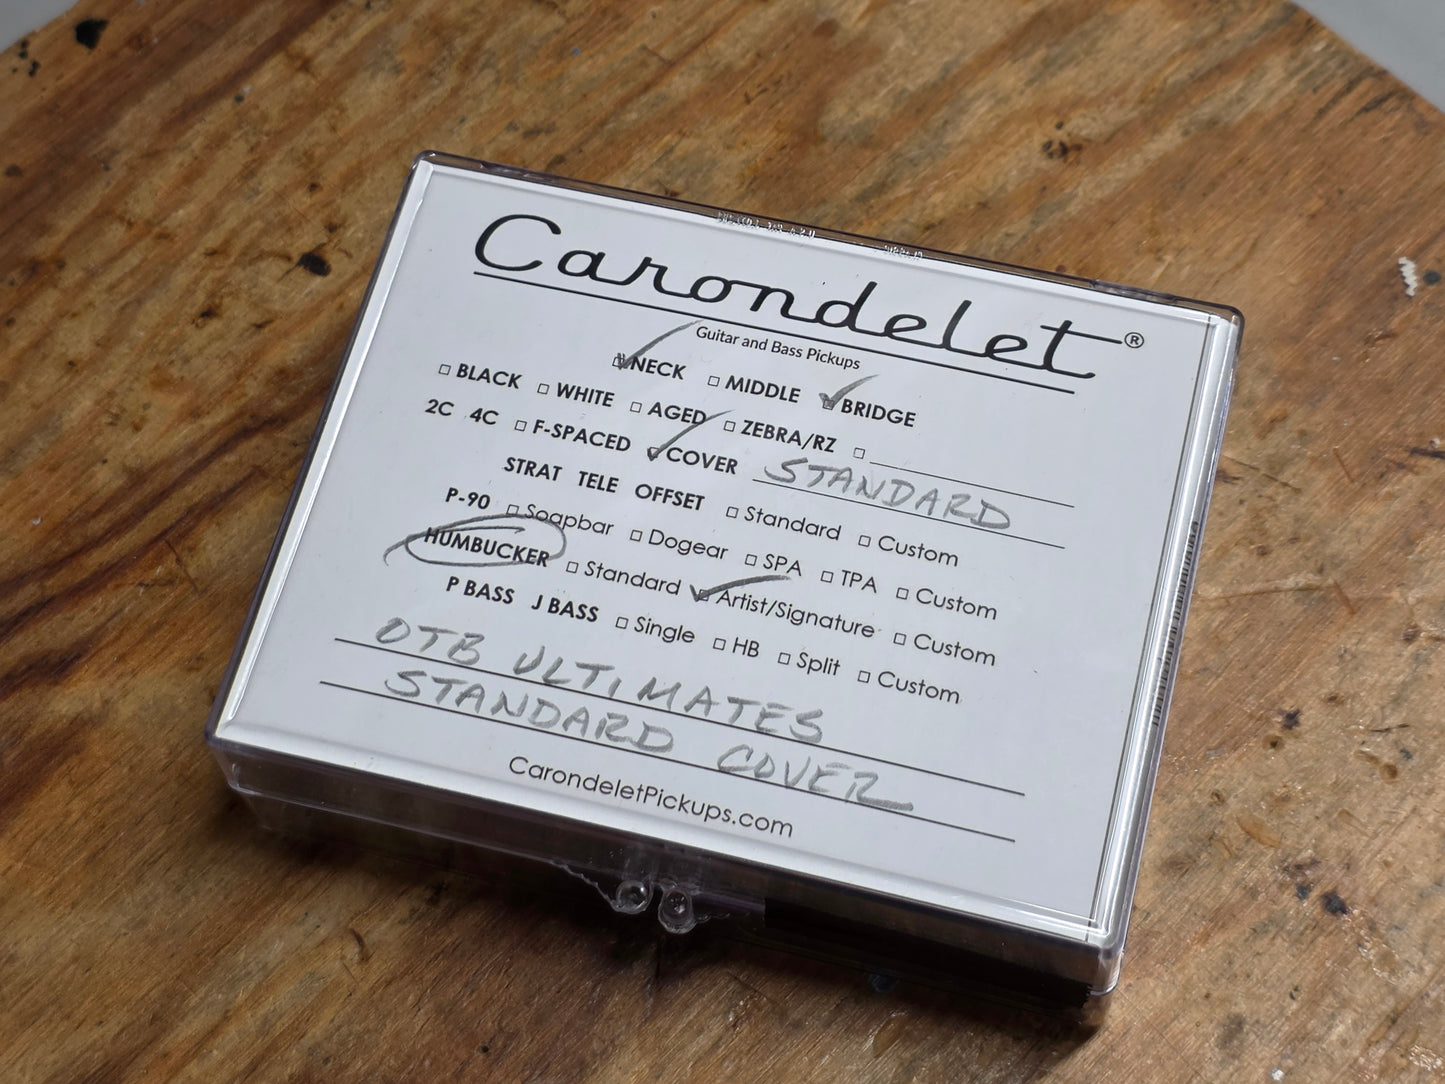 Carondelet®
Guitar and Bass Pickups
☑ NECK ☐ MIDDLE ☑ BRIDGE
☐ BLACK ☐ WHITE ☐ AGED ☐ ZEBRA/RZ ☐
2C 4C ☐ F-SPACED ☑ COVER STANDARD
STRAT TELE OFFSET ☐ Standard ☐ Custom
P-90 ☐ Soapbar ☐ Dogear ☐ SPA ☐ TPA ☐ Custom
HUMBUCKER ☐ Standard ☑ Artist/Signature ☐ Custom
P BASS J BASS ☐ Single ☐ HB ☐ Split ☐ Custom
OTB ULTIMATES
STANDARD COVER
CarondeletPickups.com